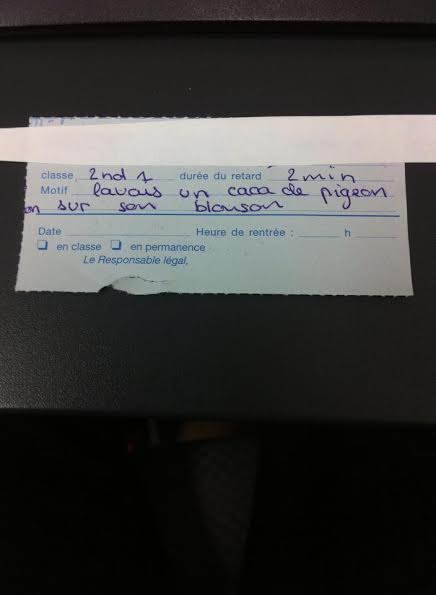 classe 2nd 1 durée du retard 2 min
Motif lavais un caca de pigeon
sur son blouson
Date Heure de rentrée : h
en classe en permanence
Le Responsable légal,